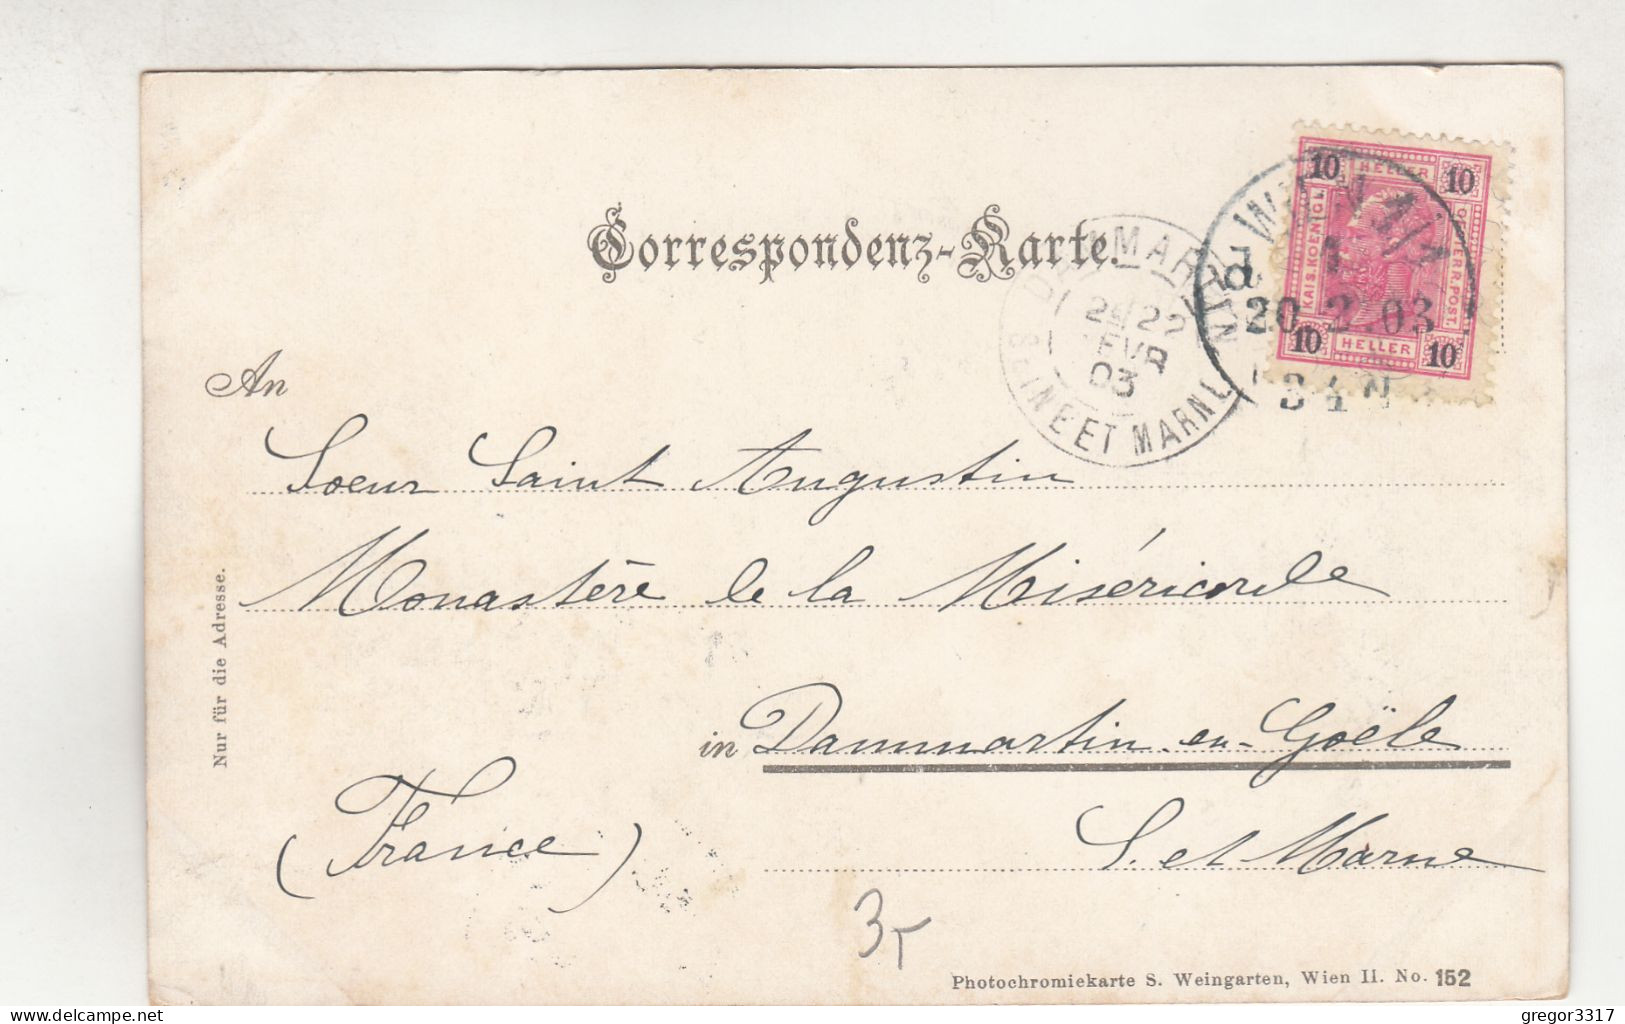 Correspondenz-Karte.
10 HELLER 10
KAIS. KOENIGL.
OESTERR. POST.
10 HELLER 10
WIEN 4/1
20.2.03
SEINE ET MARNE
22
FEVR
03
An
Soeur Saint Augustin
Monastère de la Miséricorde
in Dammartin-en-Goële
(France)
S. et Marne
Nur für die Adresse.
35
Photochromiekarte S. Weingarten, Wien II. No. 152
delcampe.net
gregor3317